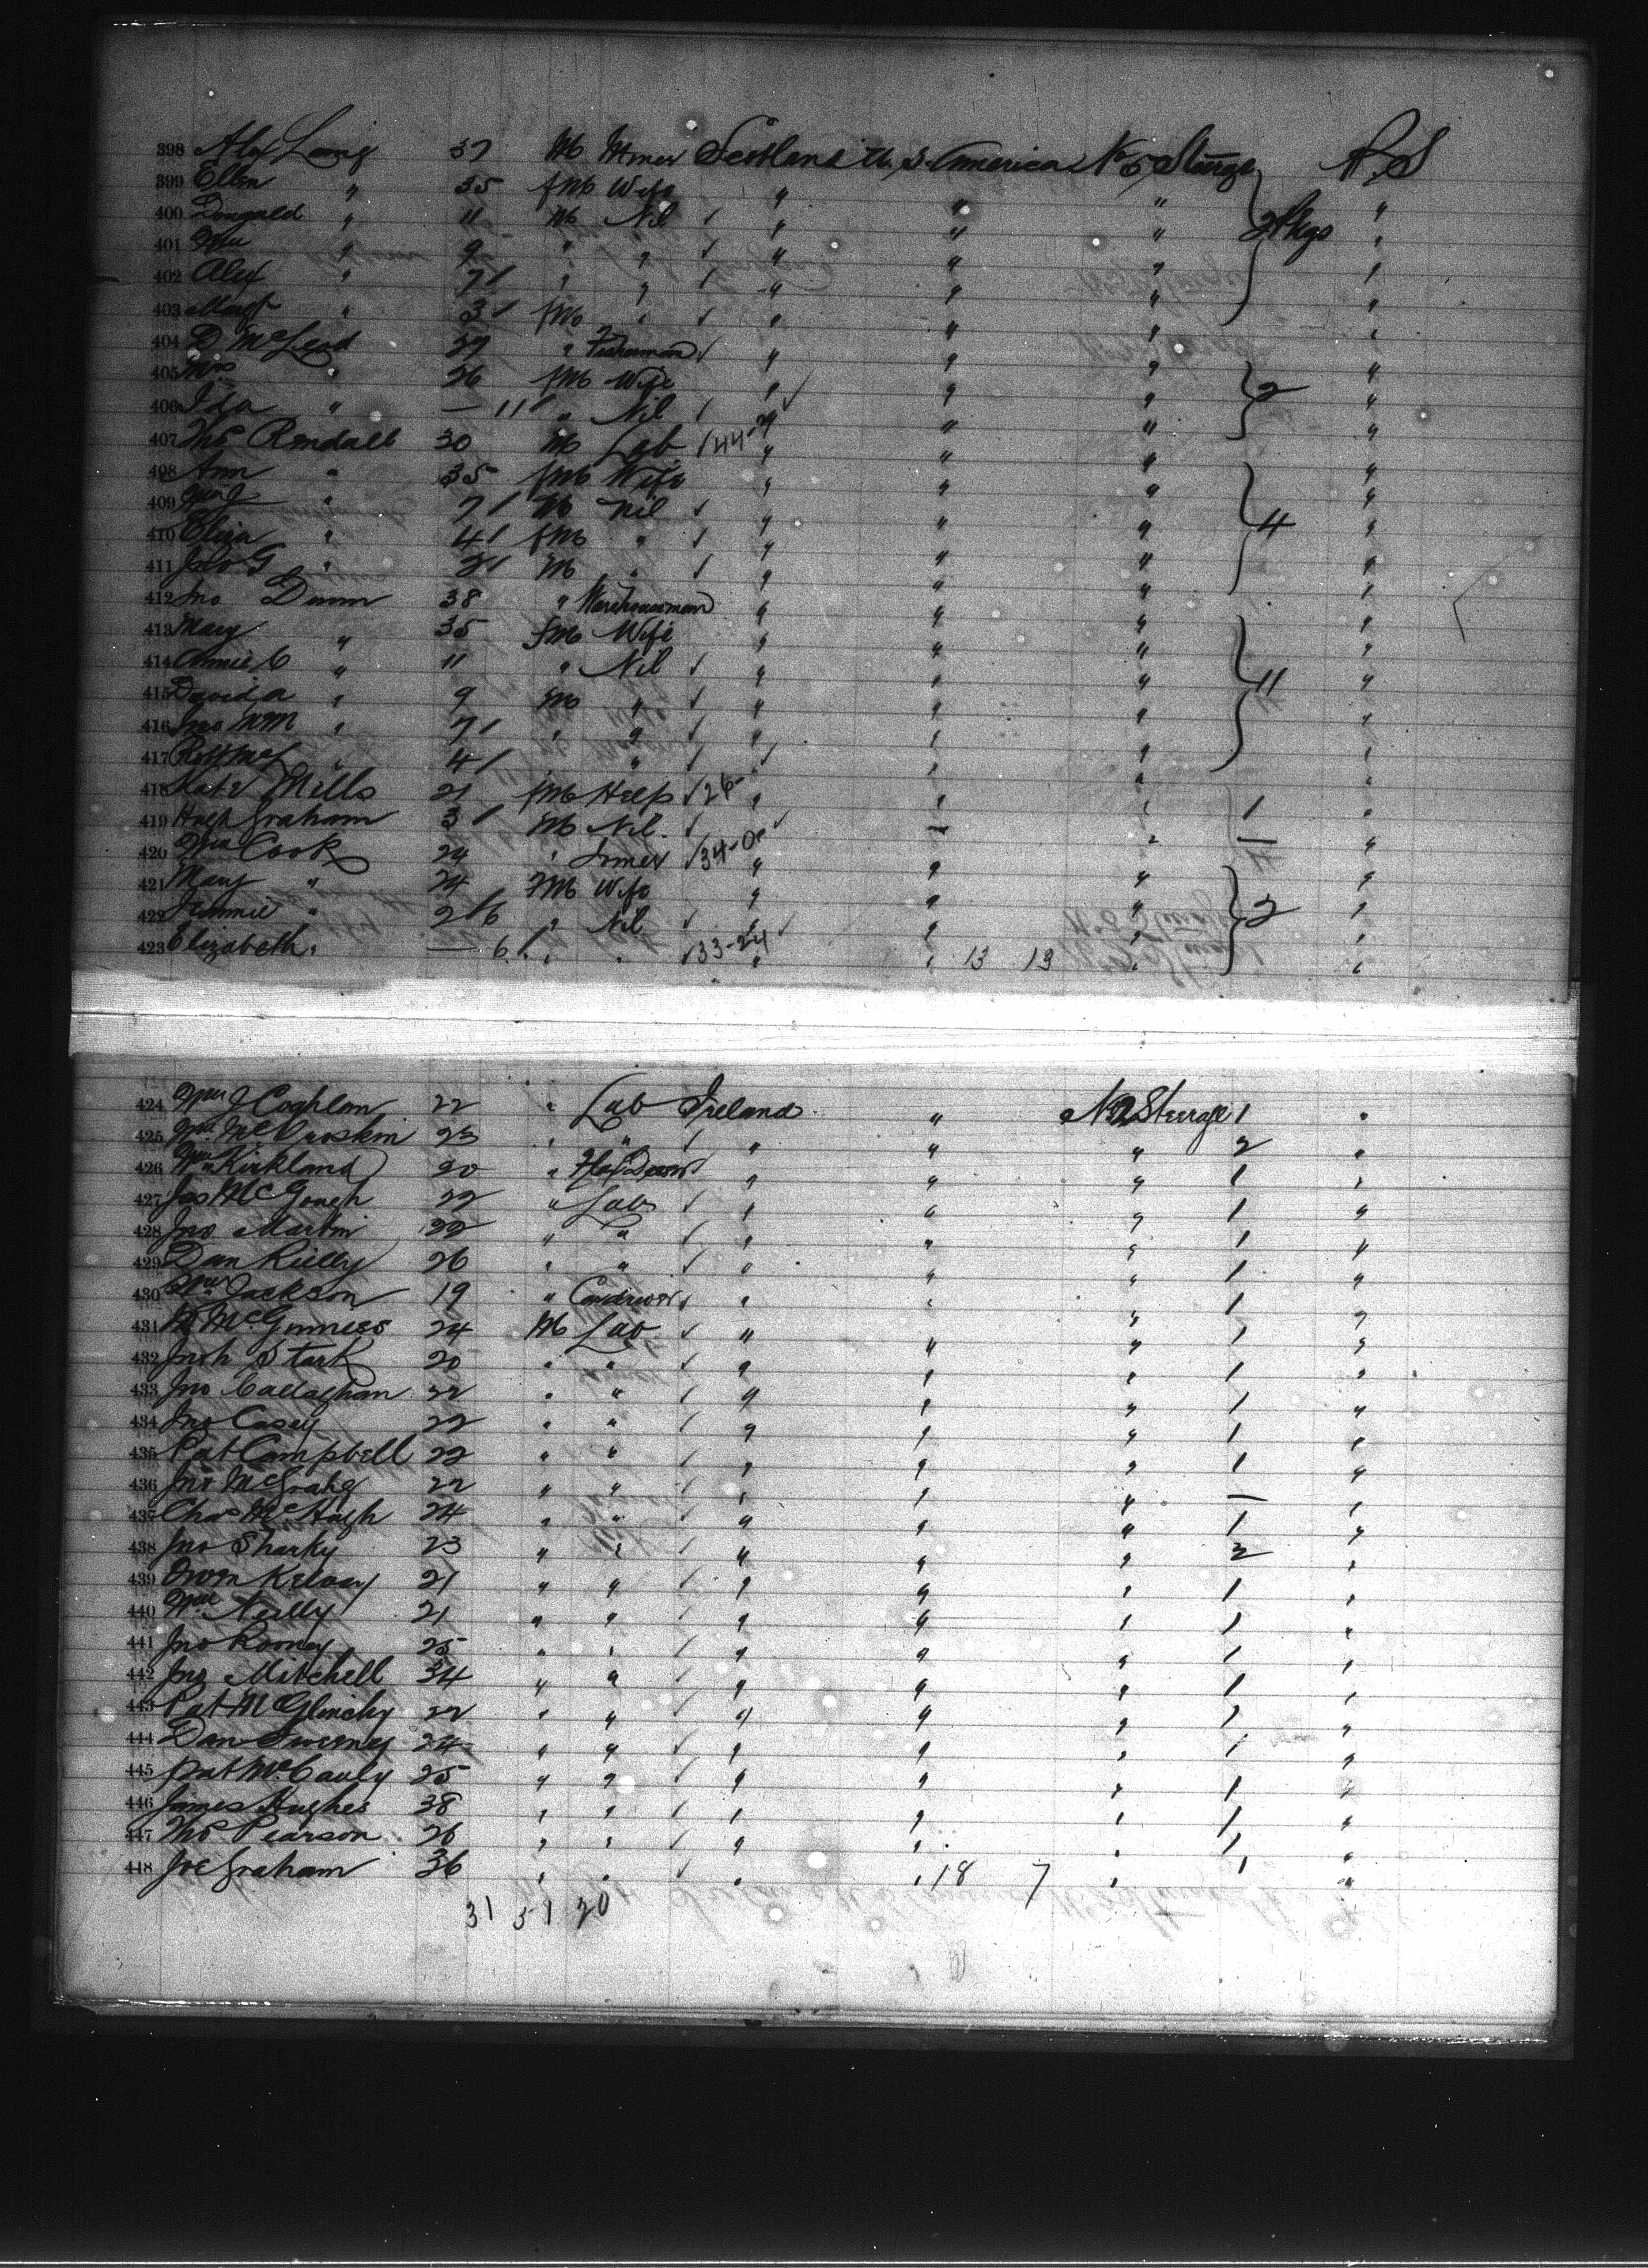 398 Alex Laing 37 M Miner Scotland U.S. America No 6 Steerge P.S
399 Ellen " 35 fM Wife " " "
400 Dougald " 11 M Nil " " " 2 Pkgs "
401 Wm " 9 " " " " " "
402 Alex " 7 " " " " " "
403 Margt " 3 fM " " " " "
404 D McLeod 29 " Fisherman " " " "
405 Mrs " 26 fM Wife " " " 2 "
406 Ida " — 11 " Nil " " " "
407 Thos Rendall 30 M Lab 44-24 " " " "
408 Ann " 35 fM Wife " " " "
409 Wm J " 7 M Nil " " " 4 "
410 Eliza " 4 fM " " " " "
411 Jno G " 2 M " " " " "
412 Jno Dunn 38 " Warehouseman " " " "
413 Mary " 35 fM Wife " " " "
414 Annie C " 11 " Nil " " " 11 "
415 David A " 9 M " " " " "
416 Jno " 7 " " " " " "
417 " 4 " " " " "
418 Kate Mills 21 fM Help 26 " " " 1 "
419 Hugh Graham 3 M Nil — " — "
420 Wm Cook 24 " 34- " " " "
421 Mary " 24 FM Wife " " " "
422 Jemmie " 2 6 " Nil " " " 2 "
423 Elizabeth " — 6 " " 33-24 " " 13 13 " "
424 Wm J Coghlan 22 " Lab Ireland " No 2 Steerage 1 "
425 23 " " " " " 2 "
426 Wm Kirkland 20 " Flax " " " 1 "
427 Jas McGough 22 " Lab " " " 1 "
428 Jno Martin 22 " " " " " 1 "
429 Dan Rielly 26 " " " " " 1 "
430 Wm Jackson 19 " " " " 1 "
431 McGinness 24 M Lab " " " 1 "
432 Stark 20 " " " " " 1 "
433 Jno Callaghan 22 " " " " " 1 "
434 Jno Casey 22 " " " " " 1 "
435 Pat Campbell 22 " " " " " 1 "
436 Jno 22 " " " " " — "
437 Chas McHugh 24 " " " " " 1 "
438 Jno Sharky 23 " " " " " 2 "
439 Owen 21 " " " " " 1 "
440 Wm Neilly 21 " " " " " 1 "
441 Jno Rooney 25 " " " " " 1 "
442 Jno Mitchell 34 " " " " " 1 "
443 Pat McGlinchy 22 " " " " " 1 "
444 Dan Sweeney 24 " " " " " 1 "
445 Pat McCauly 25 " " " " " 1 "
446 James Hughes 38 " " " " " 1 "
447 Thos Pearson 26 " " " " " 1 "
448 Joe Graham 36 " " " " 18 7 " 1 "
31 51 20